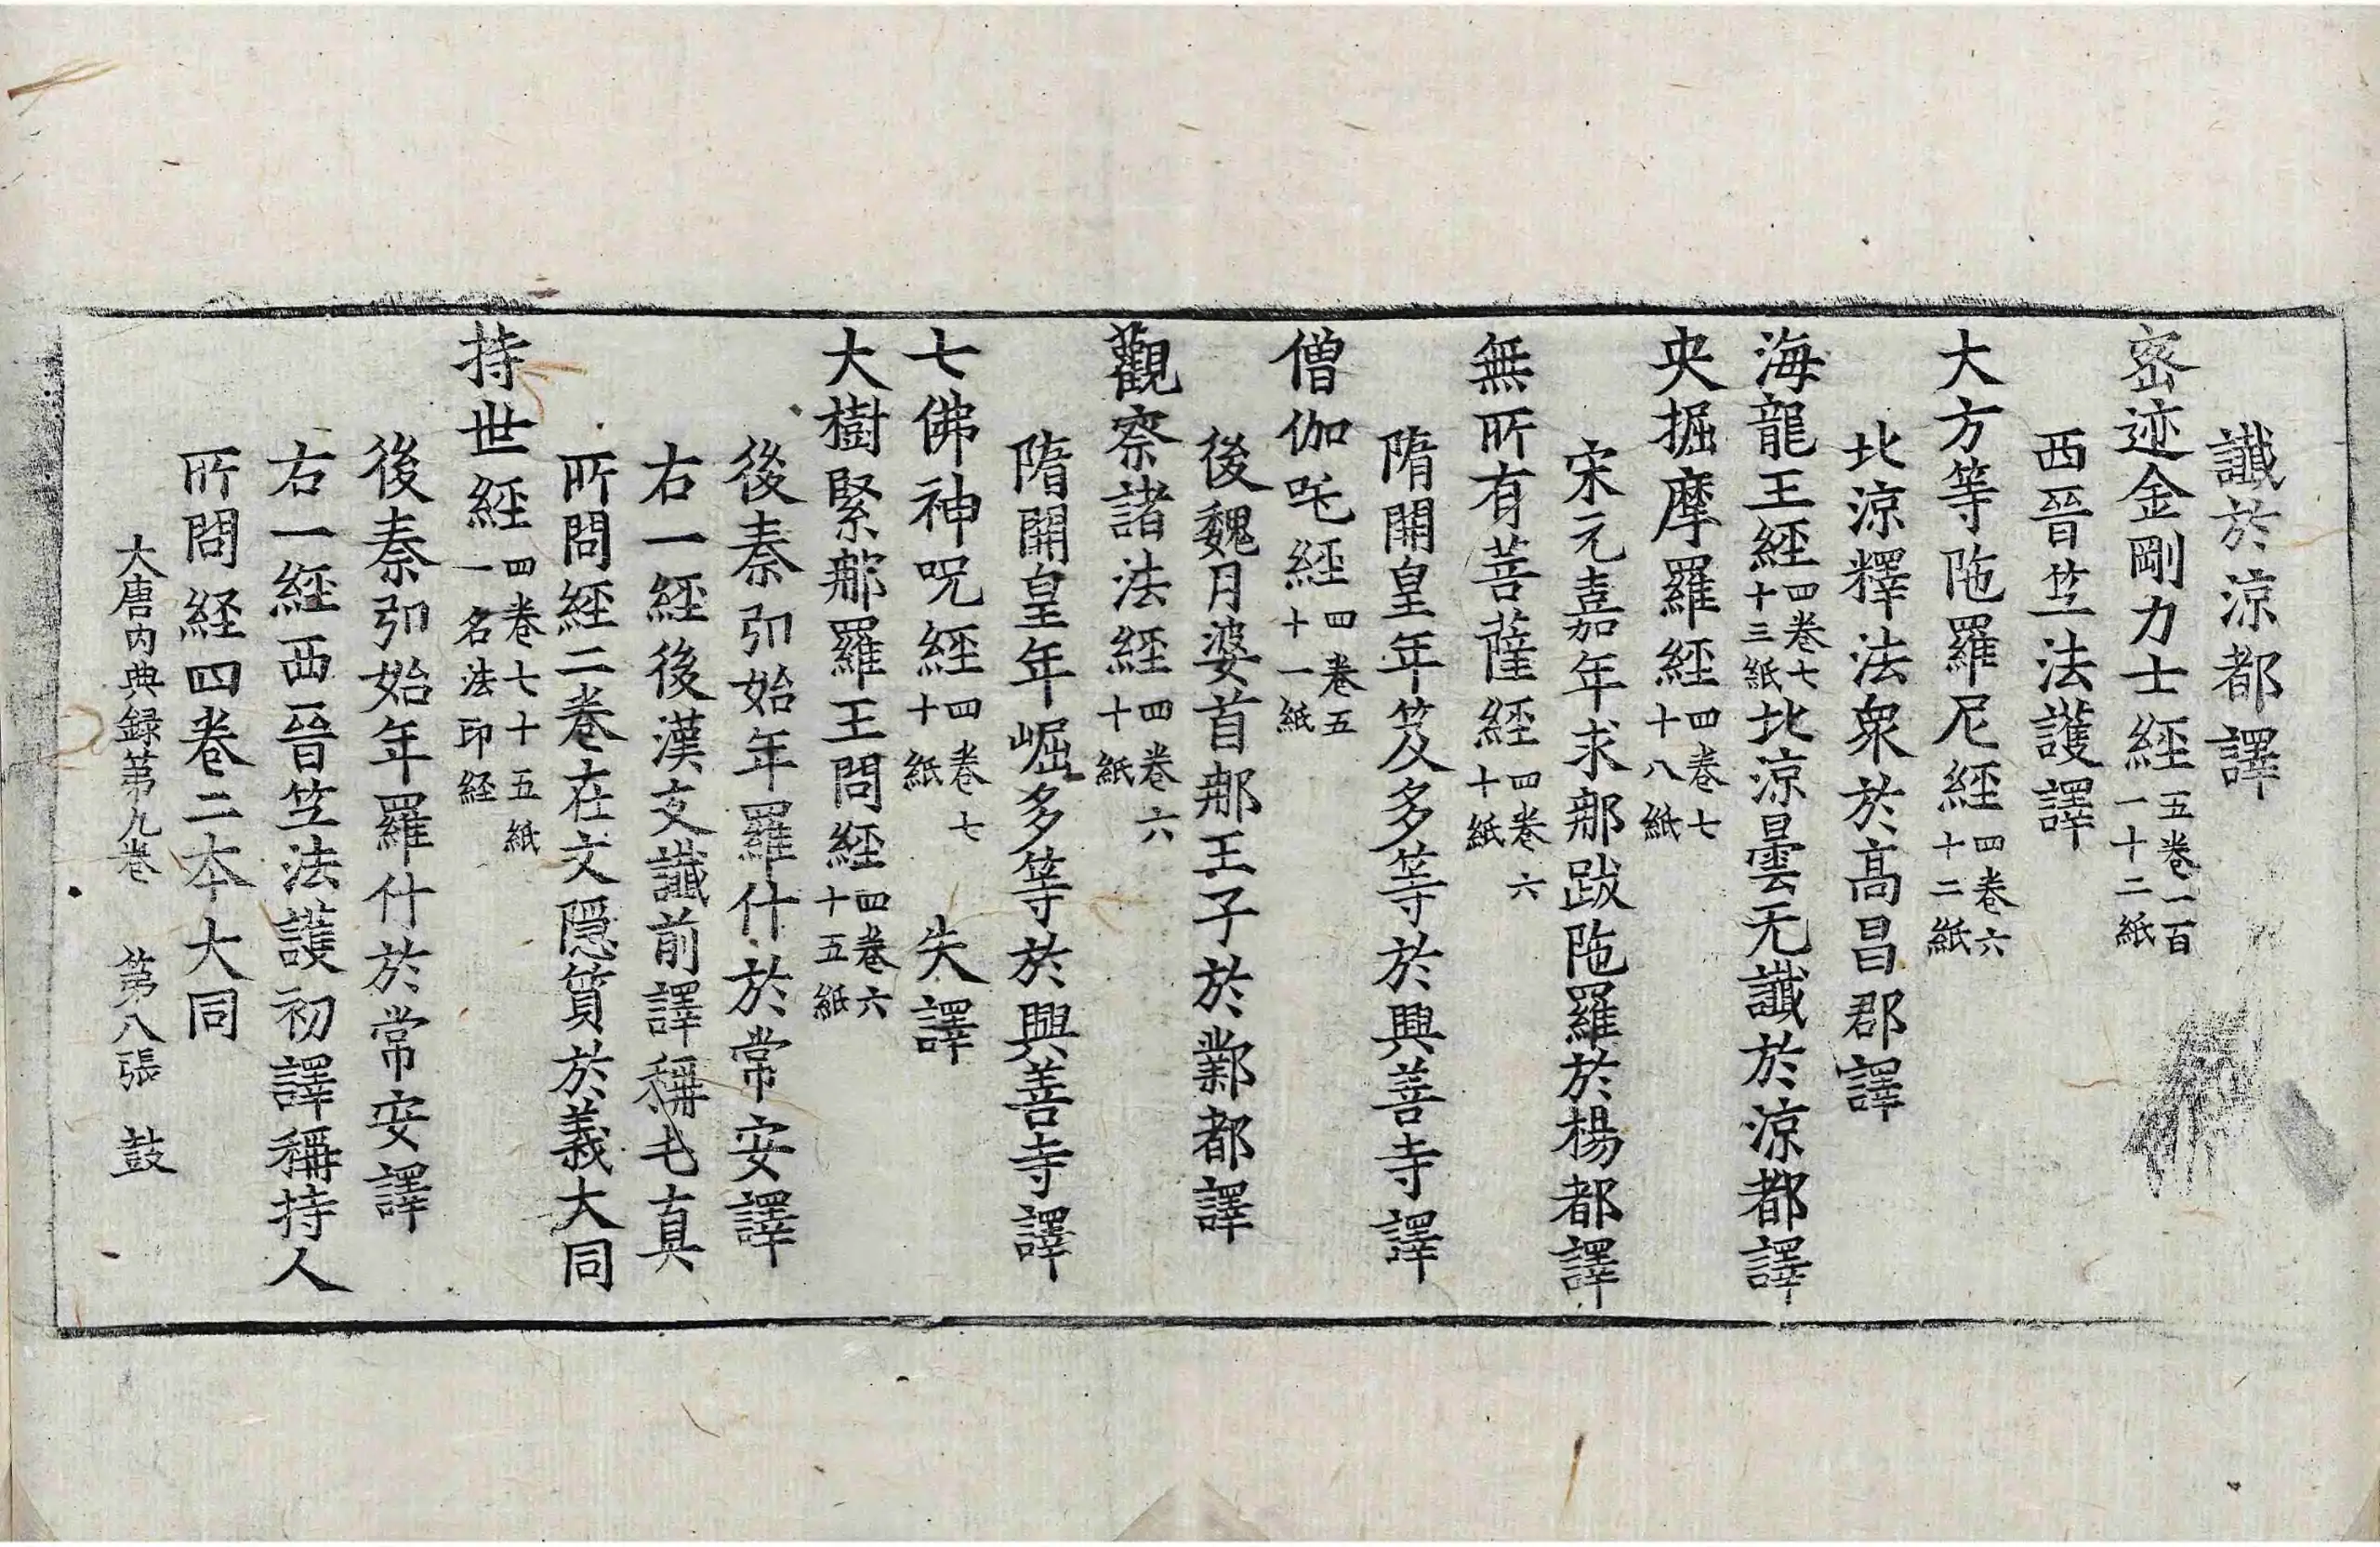 讖於涼都譯
密迹金剛力士經五卷一百一十二紙
西晉竺法護譯
大方等陁羅尼經四卷六十二紙
北涼釋法衆於高昌郡譯
海龍王經四卷七十三紙北涼曇无讖於涼都譯
央掘摩羅經四卷七十八紙
宋元嘉年求那跋陁羅於楊都譯
無所有菩薩經四卷六十紙
隋開皇年笈多等於興善寺譯
僧伽吒經四卷五十一紙
後魏月婆首那王子於鄴都譯
觀察諸法經四卷六十紙
隋開皇年崛多等於興善寺譯
七佛神呪經四卷七十紙 失譯
大樹緊那羅王問經四卷六十五紙
後秦弘始年羅什於常安譯
右一經後漢支讖前譯稱乇真
所問經二卷在文隱質於義大同
持世經四卷七十五紙一名法印経
後秦弘始年羅什於常安譯
右一經西晉竺法護初譯稱持人
所問経四卷二本大同
大唐內典録第九卷 第八張 鼓